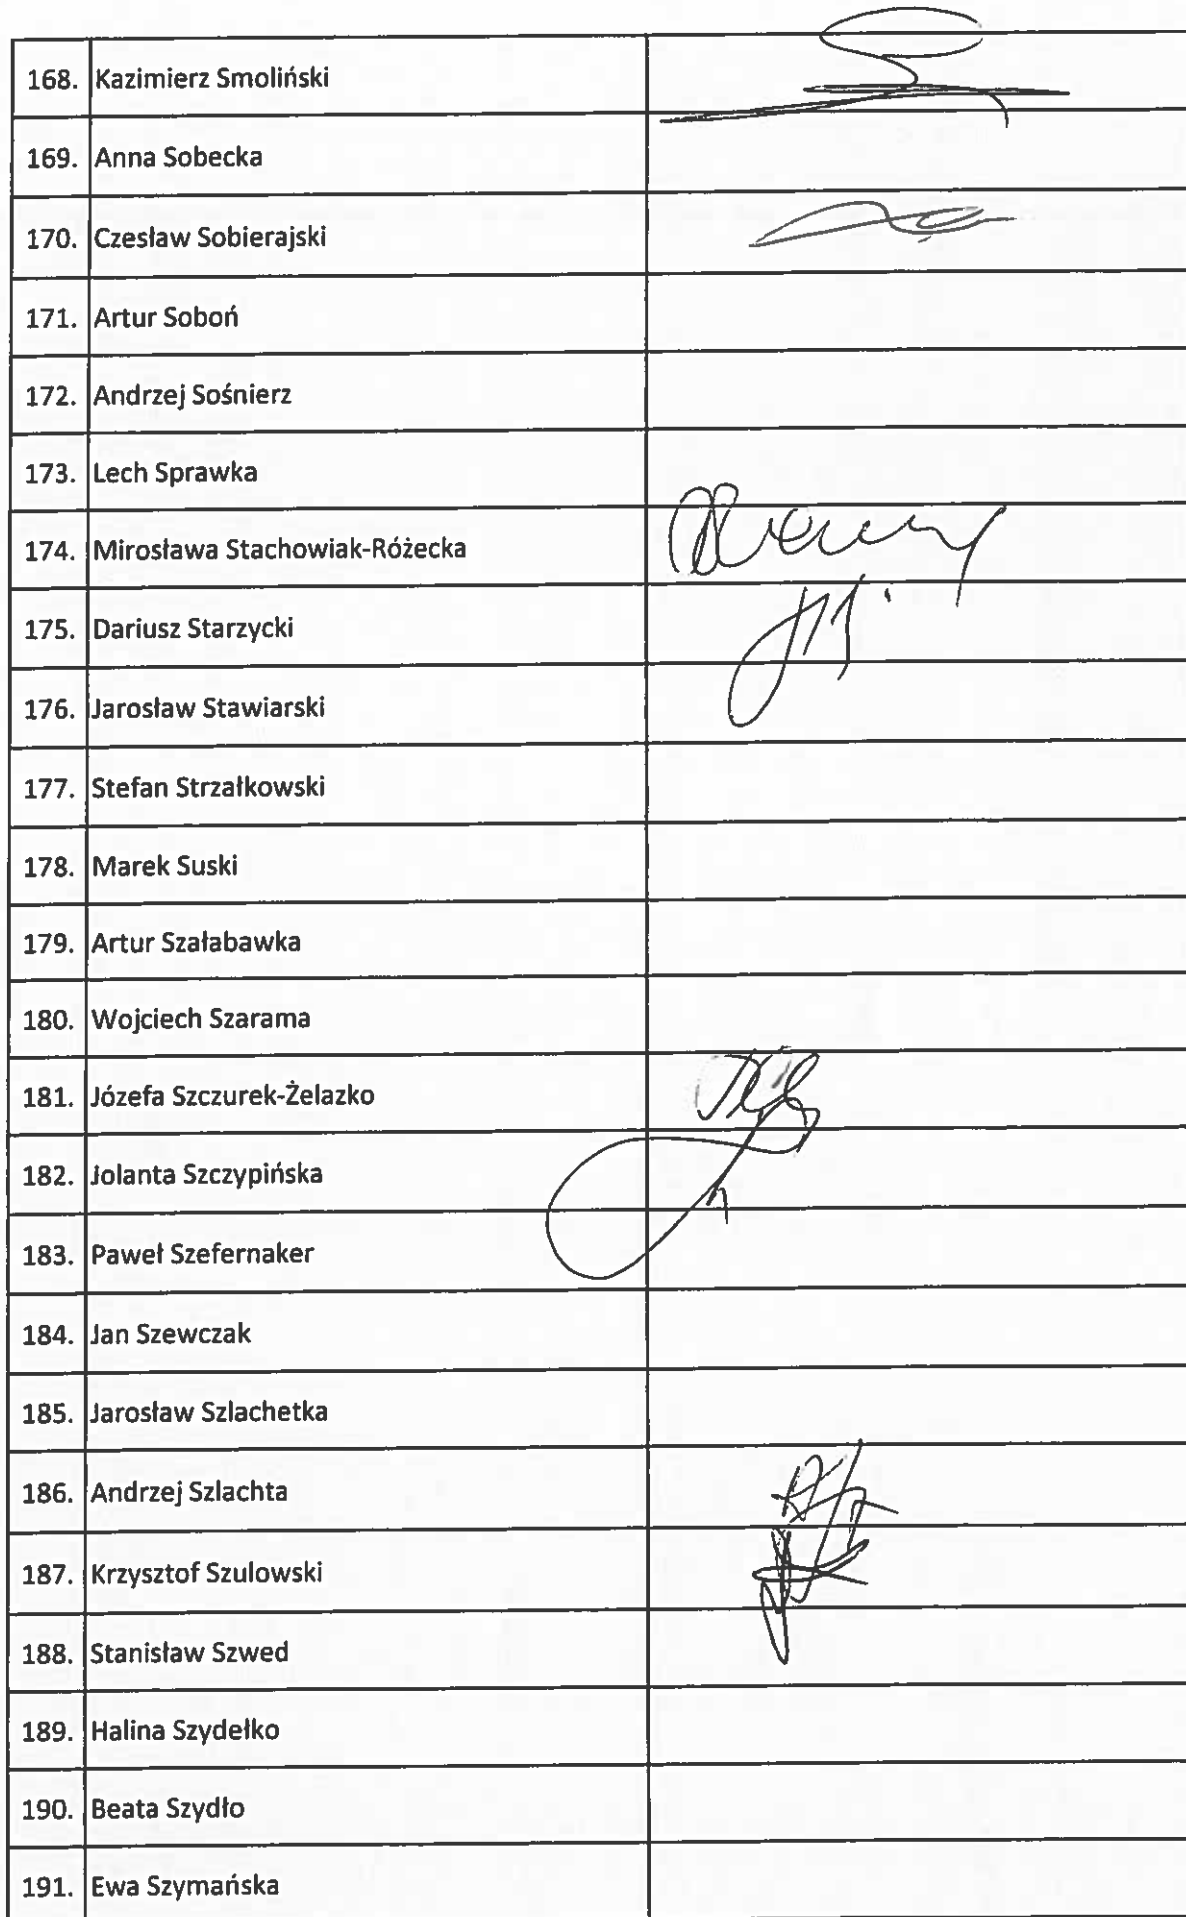 168. Kazimierz Smoliński
169. Anna Sobecka
170. Czesław Sobierajski
171. Artur Soboń
172. Andrzej Sośnierz
173. Lech Sprawka
174. Mirosława Stachowiak-Różecka
175. Dariusz Starzycki
176. Jarosław Stawiarski
177. Stefan Strzałkowski
178. Marek Suski
179. Artur Szałabawka
180. Wojciech Szarama
181. Józefa Szczurek-Żelazko
182. Jolanta Szczypińska
183. Paweł Szefernaker
184. Jan Szewczak
185. Jarosław Szlachetka
186. Andrzej Szlachta
187. Krzysztof Szulowski
188. Stanisław Szwed
189. Halina Szydełko
190. Beata Szydło
191. Ewa Szymańska